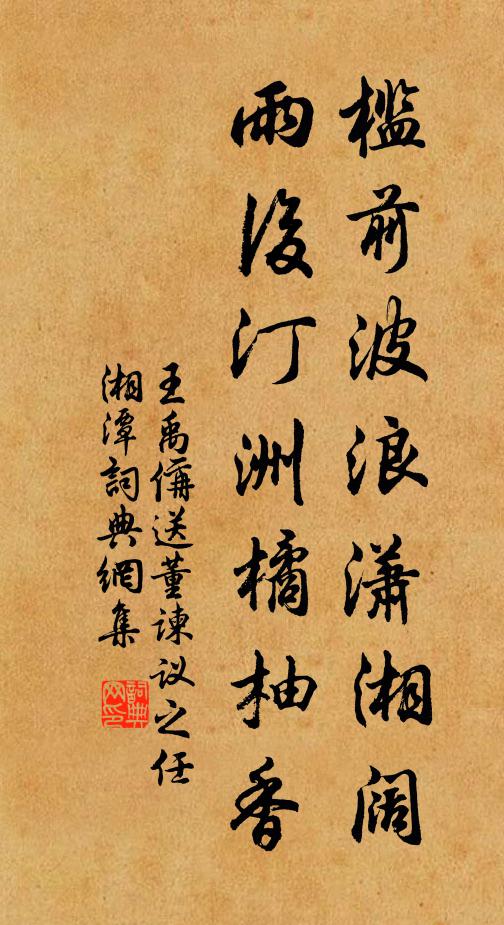 檻前波浪瀟湘闊
雨後汀洲橘柚香
王禹偁送董諫议之任
湘潭詞典網集
詞典
网印